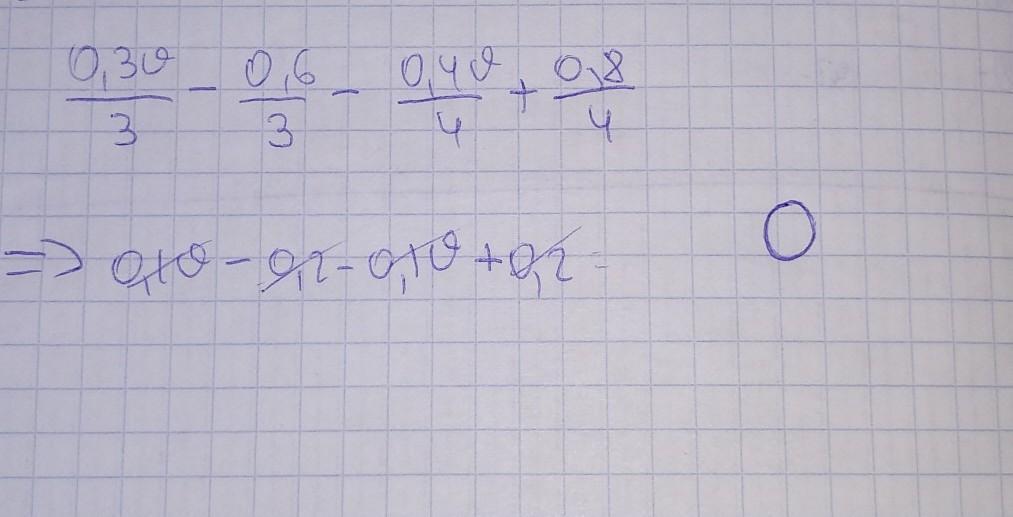 0,3υ/3 - 0,6/3 - 0,4υ/4 + 0,8/4
=> 0,1υ - 0,2 - 0,1υ + 0,2 = 0